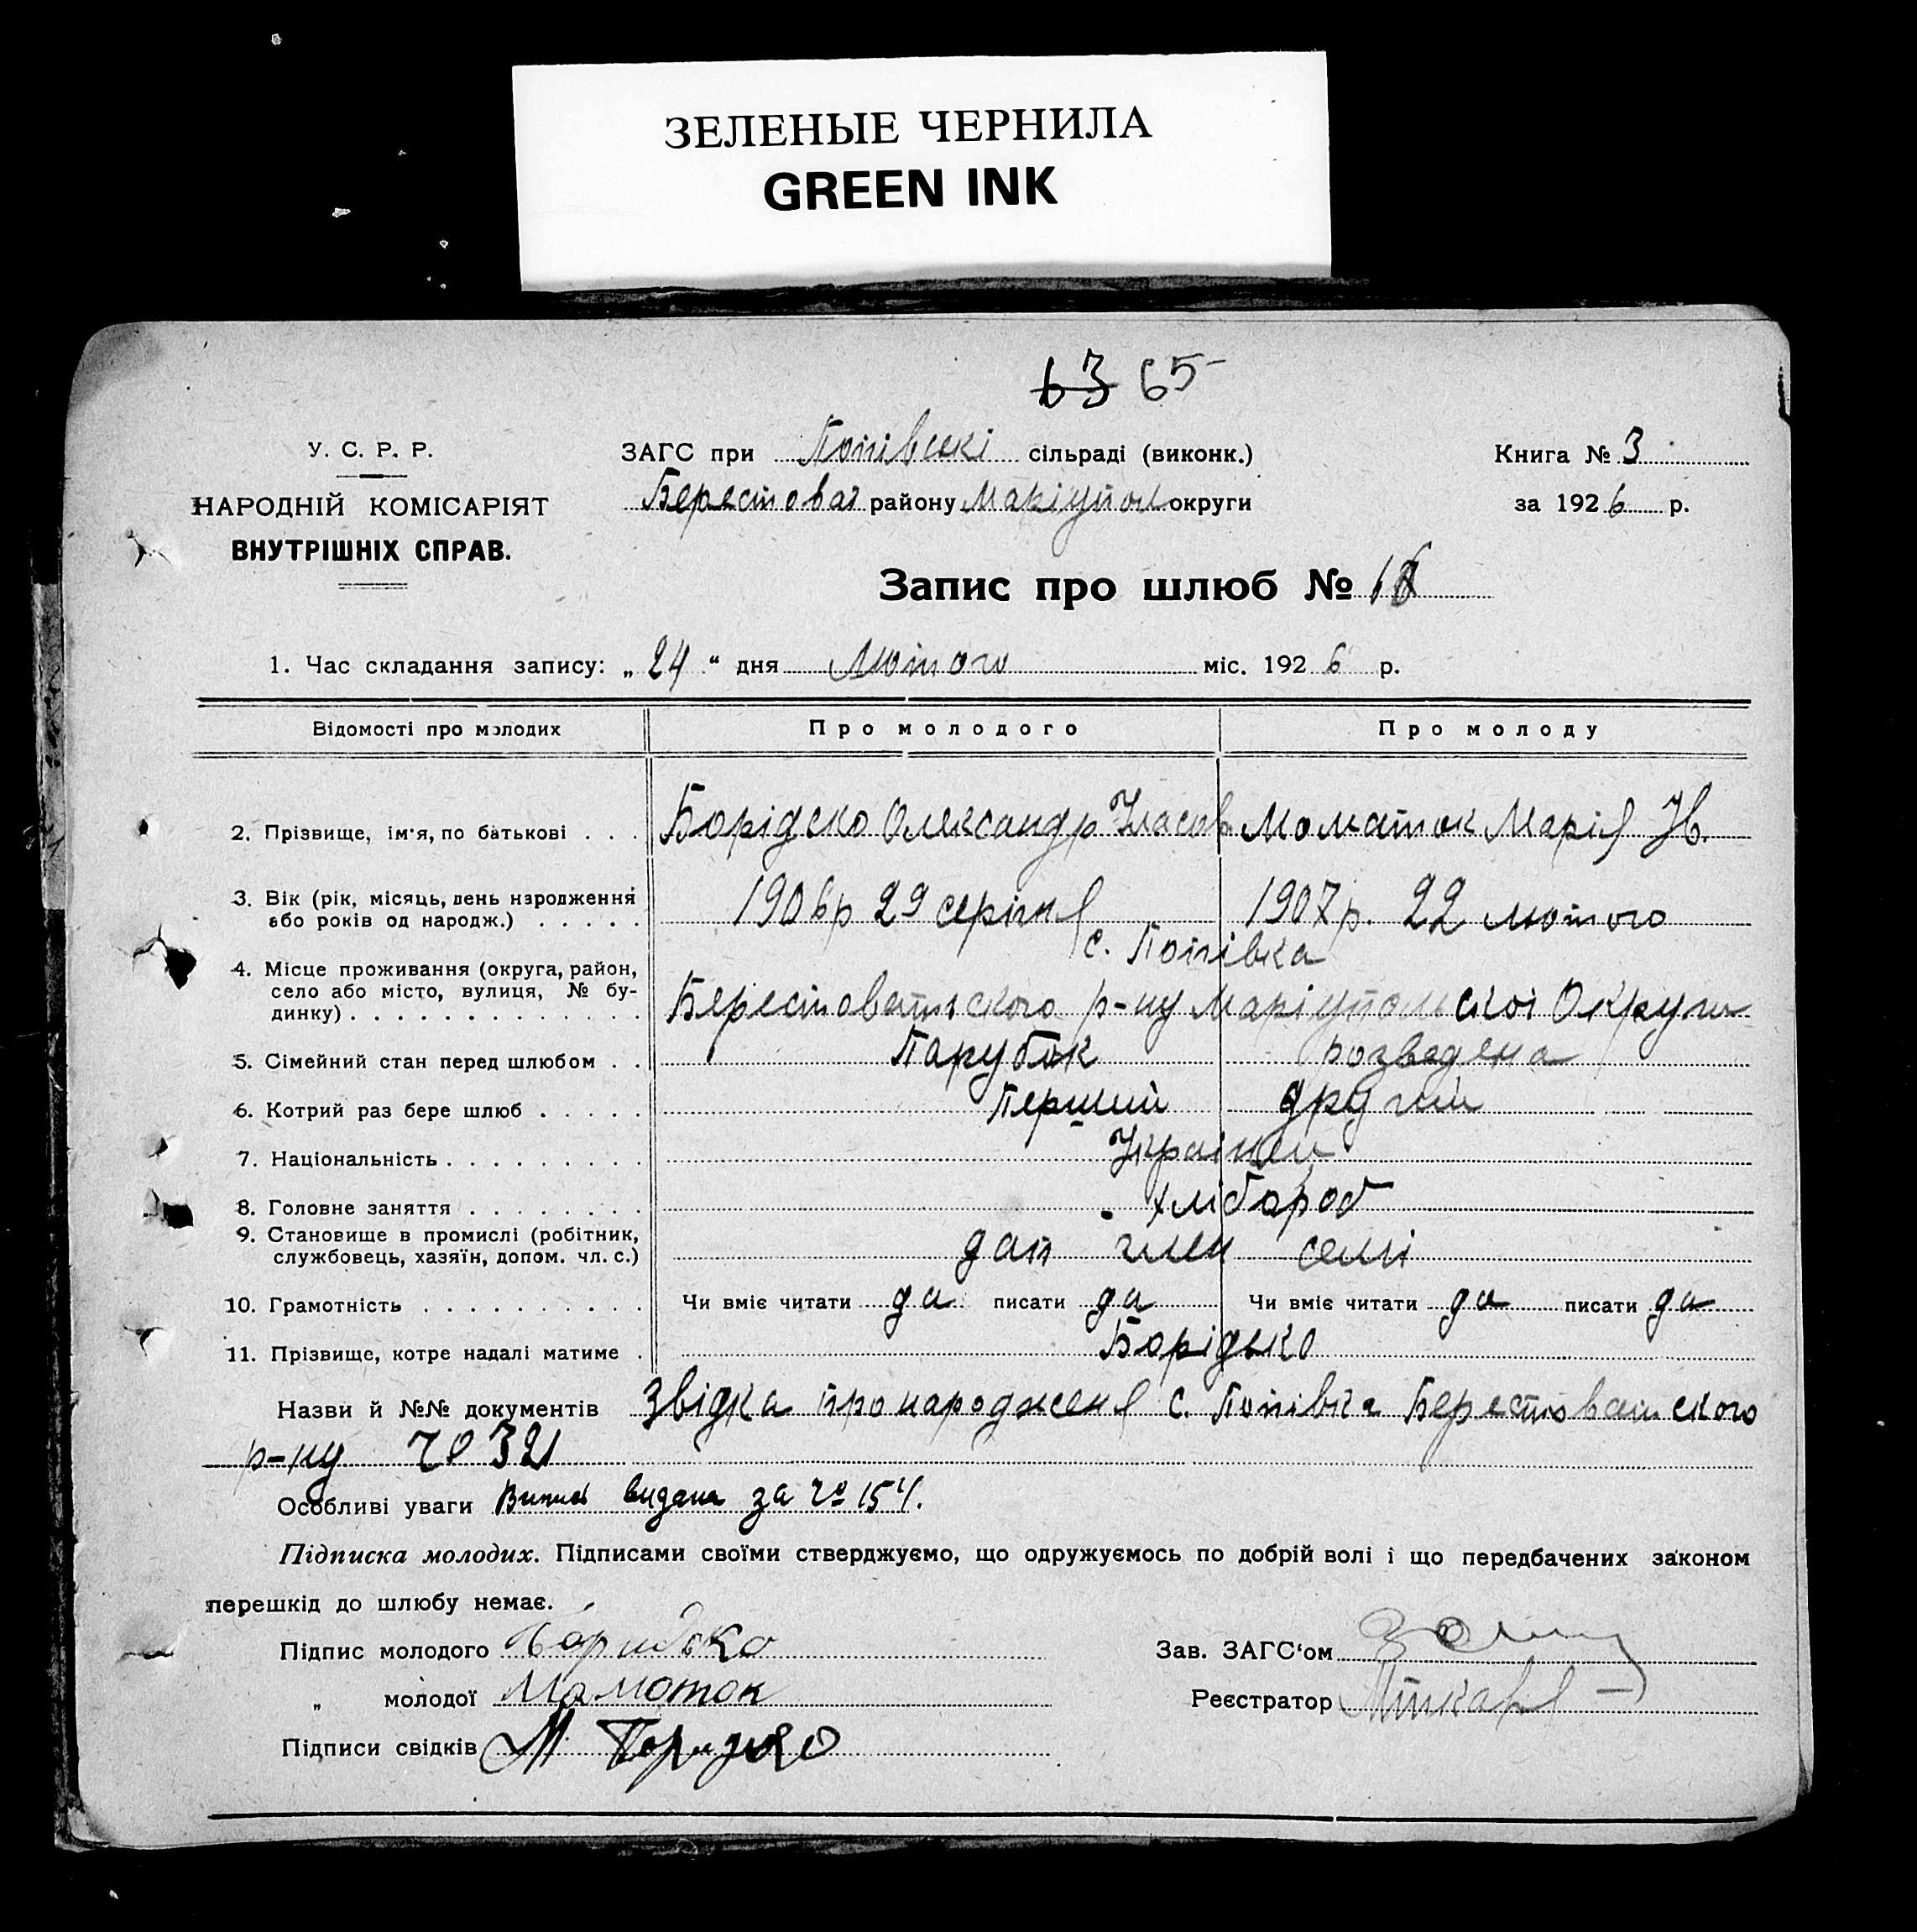 ЗЕЛЕНЫЕ ЧЕРНИЛА
GREEN INK
63 65
У. С. Р. Р.
НАРОДНІЙ КОМІСАРІЯТ
ВНУТРІШНІХ СПРАВ.
ЗАГС при Попівські сільраді (виконк.)
Берестовая району Маріупол округи
Книга № 3
за 1926 р.
Запис про шлюб №
1. Час складання запису: „24“ дня Лютого міс. 1926 р.
Відомості про молодих Про молодого Про молоду
2. Прізвище, ім'я, по батькові . . . Борідско Олександр Маматок Марія
3. Вік (рік, місяць, день народження
або років од народж.) . . . . . 1906р 29 серпня 1907р. 22 лютого
с. Попівка
4. Місце проживання (округа, район,
село або місто, вулиця, № бу-
динку) . . . . . . . . . . . . . Берестоватського р-ну Маріупольскоі Округи
5. Сімейний стан перед шлюбом . . Парубок розведена
6. Котрий раз бере шлюб . . . . . Перший другий
7. Національність . . . . . . . . . Украінец
8. Головне заняття . . . . . . . . хлібороб
9. Становище в промислі (робітник,
службовець, хазяїн, допом. чл. с.) доп член семі
10. Грамотність . . . . . . . . . . Чи вміє читати да писати да Чи вміє читати да писати да
11. Прізвище, котре надалі матиме . Борідько
Назви й №№ документів Звідка про народженя с. Попівка Берестоватского
р-ну № 321
Особливі уваги Випис видана за № 154.
Підписка молодих. Підписами своїми стверджуємо, що одружуємось по добрій волі і що передбачених законом
перешкід до шлюбу немає.
Підпис молодого Боридько
„ молодої Маматок
Підписи свідків М
Зав. ЗАГС'ом
Реєстратор